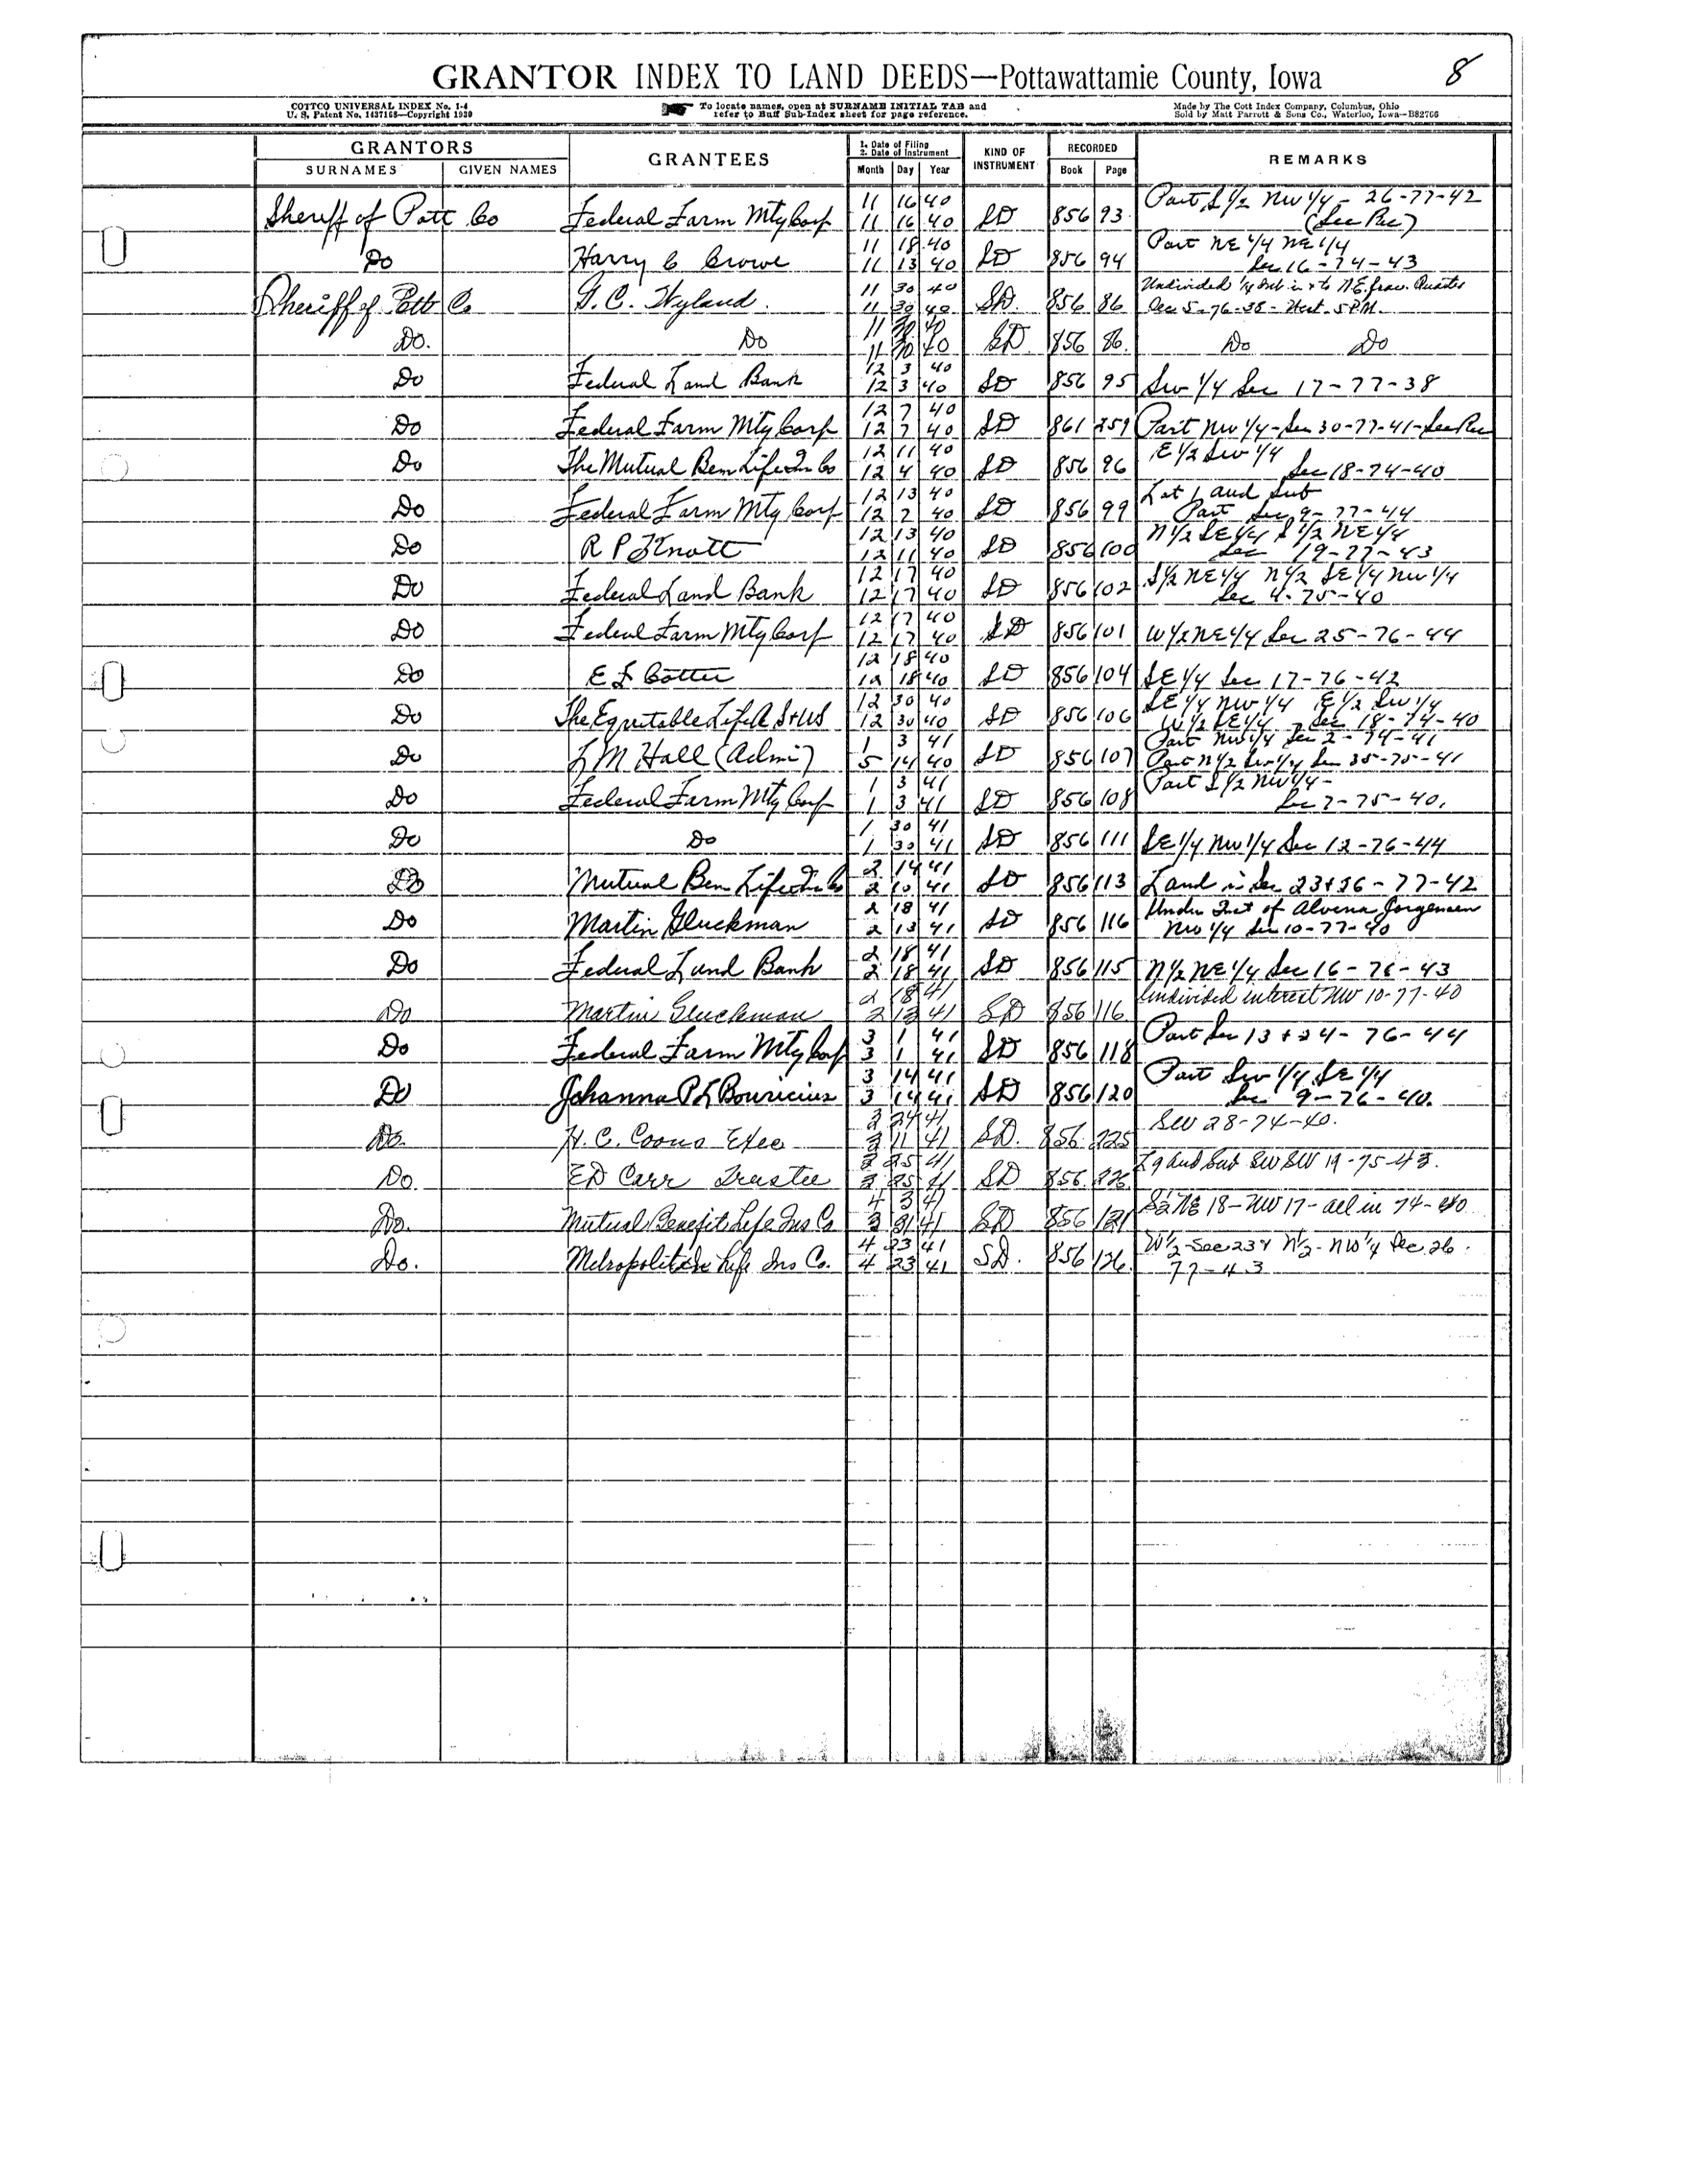 8
GRANTOR INDEX TO LAND DEEDS—Pottawattamie County, Iowa
COTTCO UNIVERSAL INDEX No. 1-4
U. S. Patent No. 1437168—Copyright 1930
To locate names, open at SURNAME INITIAL TAB and
refer to Buff Sub-Index sheet for page reference.
Made by The Cott Index Company, Columbus, Ohio
Sold by Matt Parrott & Sons Co., Waterloo, Iowa—B82766
GRANTORS GRANTEES 1. Date of Filing 2. Date of Instrument KIND OF INSTRUMENT RECORDED REMARKS
SURNAMES GIVEN NAMES Month Day Year Book Page
11 16 40 Part S 1/2 NW 1/4 - 26-77-42
Sheriff of Pott Co Federal Farm Mtg Corp 11 16 40 SD 856 93 (See Rec)
11 18 40 Part NE 1/4 NE 1/4
Do Harry C Crowe 11 13 40 SD 856 94 Sec 16-74-43
11 30 40 Undivided 1/4 in + to N.E. frac. Quarter
Sheriff of Pott Co G. C. Wyland. 11 30 40 SD. 856 86 Sec 5-76-38- West 5 P.M.
11 30 40
Do. Do 11 30 40 SD 856 86. Do Do
12 3 40
Do Federal Land Bank 12 3 40 SD 856 95 SW 1/4 Sec 17-77-38
12 7 40
Do Federal Farm Mtg Corp 12 7 40 SD 861 259 Part NW 1/4-Sec 30-77-41-See Rec
12 11 40 E 1/2 SW 1/4
Do The Mutual Ben Life In Co 12 4 40 SD 856 96 Sec 18-74-40
12 13 40 Lot 1 and Sub
Do Federal Farm Mtg Corp 12 7 40 SD 856 99 Part Sec 9-77-44
12 13 40 N 1/2 SE 1/4 S 1/2 NE 1/4
Do R P Knott 12 11 40 SD 856 100 Sec 19-77-43
12 17 40 S 1/2 NE 1/4 N 1/2 SE 1/4 NW 1/4
Do Federal Land Bank 12 17 40 SD 856 102 Sec 4-75-40
12 17 40
Do Federal Farm Mtg Corp 12 17 40 SD 856 101 W 1/2 NE 1/4 Sec 25-76-44
12 18 40
Do E L Cotter 12 18 40 SD 856 104 SE 1/4 Sec 17-76-42
12 30 40 SE 1/4 NW 1/4 E 1/2 SW 1/4
Do The Equitable Life A S+US 12 30 40 SD 856 106 W 1/2 SE 1/4 Sec 18-74-40
1 3 41 Part NW 1/4 Sec 2-74-41
Do L M Hall (Admi) 5 14 40 SD 856 107 Part N 1/2 SW 1/4 Sec 35-75-41
1 3 41 Part S 1/2 NW 1/4-
Do Federal Farm Mtg Corp 1 3 41 SD 856 108 Sec 7-75-40.
1 30 41
Do Do 1 30 41 SD 856 111 SE 1/4 NW 1/4 Sec 12-76-44
2 14 41
Do Mutual Ben Life In Co 2 10 41 SD 856 113 Land in Sec 23+36-77-42
2 18 41 Under Int of Alvena Jorgensen
Do Martin Gluckman 2 13 41 SD 856 116 NW 1/4 Sec 10-77-40
2 18 41
Do Federal Land Bank 2 18 41 SD 856 115 N 1/2 NE 1/4 Sec 16-76-43
2 18 41 Undivided interest NW 10-77-40
Do Martin Gluckman 2 13 41 SD 856 116
3 1 41 Part Sec 13+24-76-44
Do Federal Farm Mtg Corp 3 1 41 SD 856 118
3 14 41 Part SW 1/4 SE 1/4
Do Johanna P L Bouricius 3 14 41 SD 856 120 Sec 9-76-40.
3 24 41 SW 28-74-40.
Do. H. C. Coons Exec 3 11 41 SD. 856 225
3 25 41 L 9 and Sub SW SW 19-75-43.
Do. ED Carr Trustee 3 25 41 SD 856 226
4 3 41 S 1/2 NE 18-NW 17-all in 74-40
Do. Mutual Benefit Life Ins Co 3 31 41 SD 856 121
4 23 41 W 1/2-Sec 23 + N 1/2-NW 1/4 Sec 26-
Do. Metropolitan Life Ins Co. 4 23 41 SD. 856 126 77-43